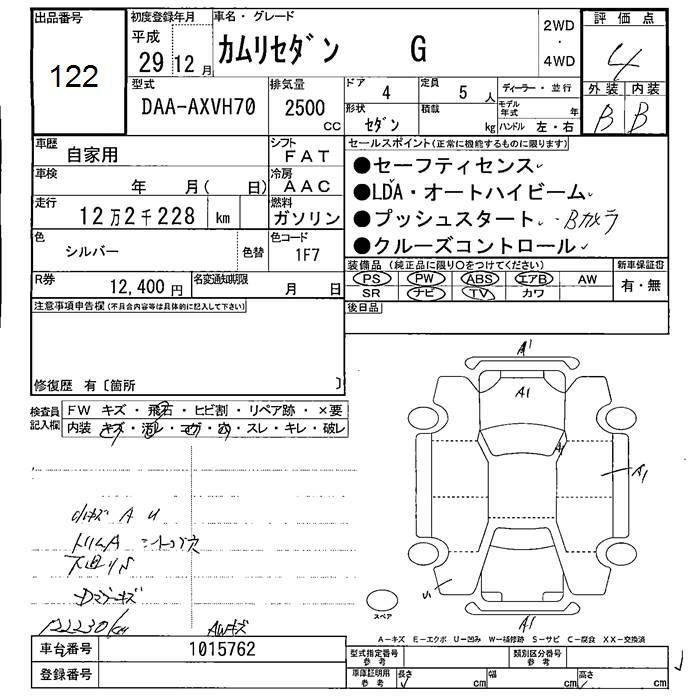 出品番号
122
初度登録年月
平成
29 12 月
車名・グレード
カムリセダン G
2WD
・
4WD
評価点
4
外装 内装
B B
型式
DAA-AXVH70
排気量
2500
CC
ドア 4
定員 5 人
形状 セダン
積載 kg
ディーラー・並行
モデル年式 年
ハンドル 左・右
車歴 自家用
シフト FAT
車検 年 月( 日)
冷房 AAC
走行 12万2千228 km
燃料 ガソリン
色 シルバー 色替
色コード 1F7
R券 12,400 円
名変通知期限 月 日
セールスポイント(正常に機能するものに限ります)
●セーフティセンス
●LDA・オートハイビーム
●プッシュスタート ・Bカメラ
●クルーズコントロール
装備品(純正品に限り○をつけてください)
PS PW ABS エアB AW
SR ナビ TV カワ
新車保証書
有・無
後日品
注意事項申告欄(不具合内容等は具体的に記入して下さい)
修復歴 有〔箇所 〕
検査員記入欄
FW キズ・飛石・ヒビ割・リペア跡・×要
内装 キズ・汚レ・コゲ・穴・スレ・キレ・破レ
小キズ A U
122230km
AWキズ
A1
A1
A1
A1
A1
スペア
A-キズ E-エクボ U-凹み W-補修跡 S-サビ C-腐食 XX-交換済
車台番号 1015762
登録番号
型式指定番号 参考
類別区分番号 参考
車庫証明用 参考
長さ cm
幅 cm
高さ cm